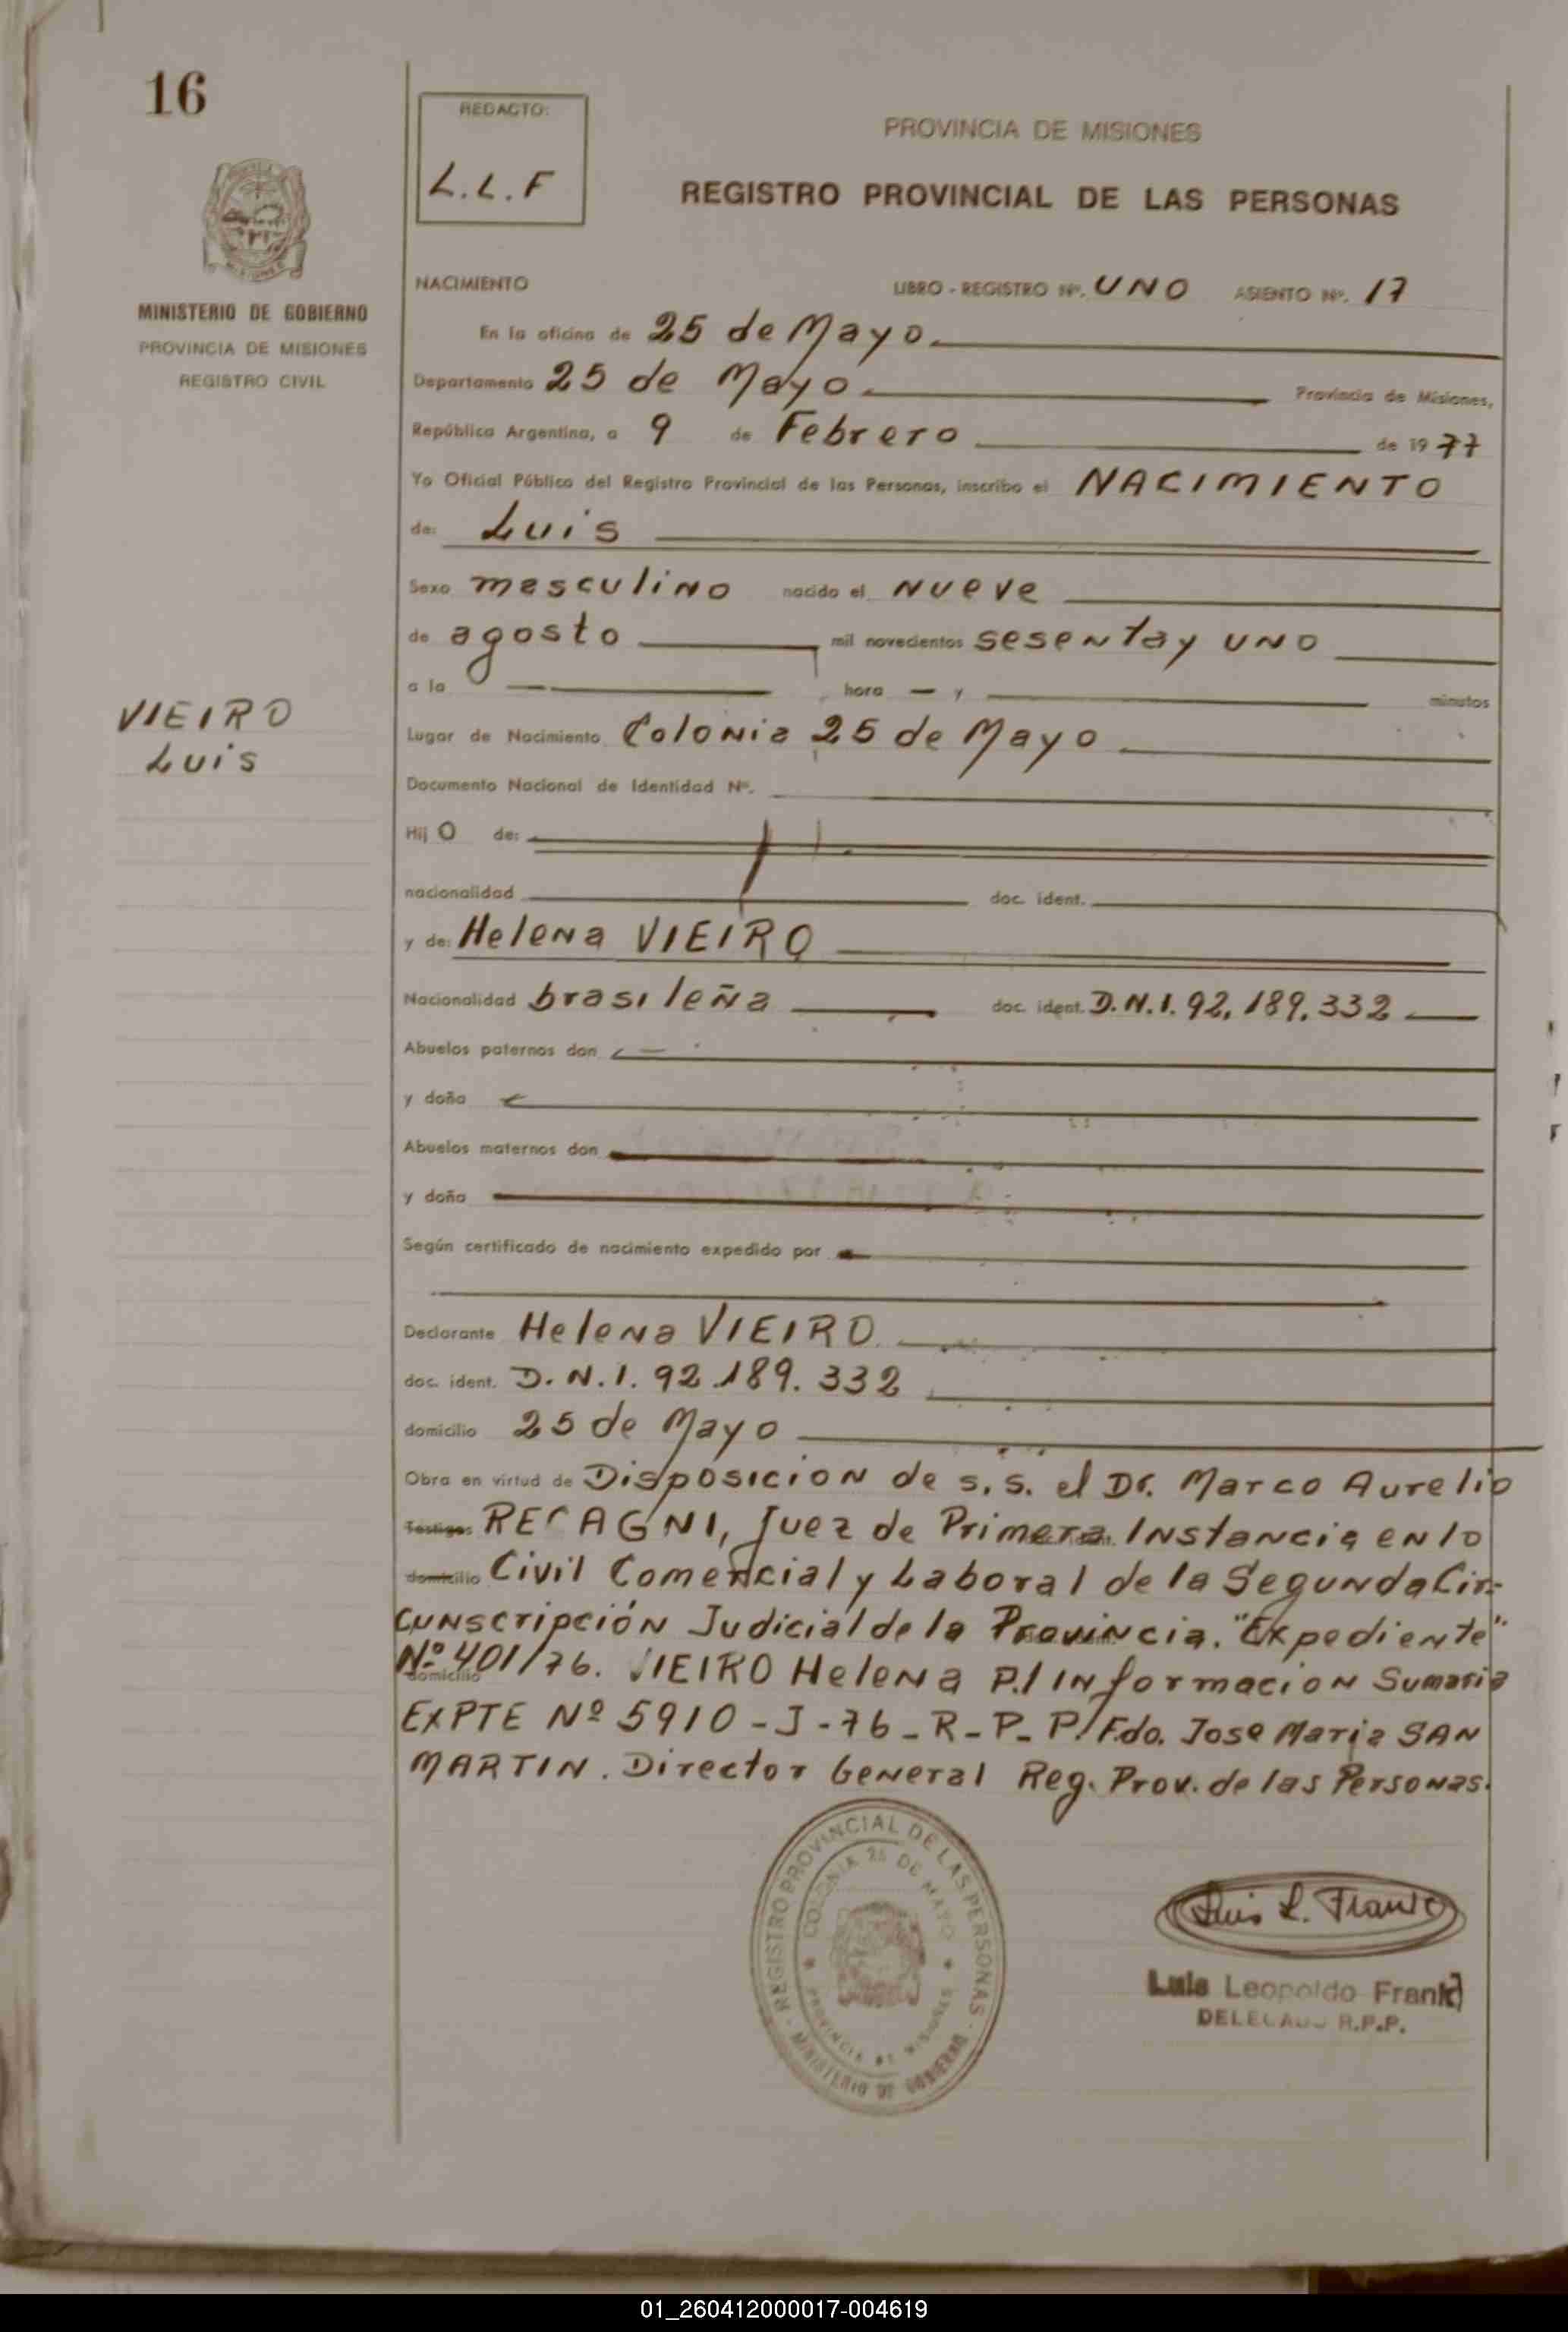 16
REDACTO:
L.L.F
PROVINCIA DE MISIONES
REGISTRO PROVINCIAL DE LAS PERSONAS
MINISTERIO DE GOBIERNO
PROVINCIA DE MISIONES
REGISTRO CIVIL
NACIMIENTO LIBRO - REGISTRO Nº. UNO ASIENTO Nº. 17
En la oficina de 25 de Mayo
Departamento 25 de Mayo Provincia de Misiones,
República Argentina, a 9 de Febrero de 1977
Yo Oficial Público del Registro Provincial de las Personas, inscribo el NACIMIENTO
de: Luis
Sexo masculino nacido el Nueve
de agosto mil novecientos sesenta y uno
a la hora y minutos
VIEIRO
Luis
Lugar de Nacimiento Colonia 25 de Mayo
Documento Nacional de Identidad Nº.
Hij O de:
nacionalidad doc. ident.
y de: Helena VIEIRO
Nacionalidad brasileña doc. ident. D.N.I. 92.189.332
Abuelos paternos don
y doña
Abuelos maternos don
y doña
Según certificado de nacimiento expedido por
Declarante Helena VIEIRO
doc. ident. D.N.I. 92.189.332
domicilio 25 de Mayo
Obra en virtud de Disposicion de s.s. el Dr. Marco Aurelio
Testigos RECAGNI, Juez de Primera Instancia en lo
domicilio Civil Comercial y Laboral de la Segunda Cir-
cunscripción Judicial de la Provincia. "Expediente"
domicilio Nº 401/76. VIEIRO Helena P./ Informacion Sumaria
EXPTE Nº 5910-J-76-R-P-P./Fdo. Jose Maria SAN
MARTIN. Director General Reg. Prov. de las Personas.
REGISTRO PROVINCIAL DE LAS PERSONAS - MINISTERIO DE GOBIERNO -
COLONIA 25 DE MAYO * PROVINCIA DE MISIONES *
Luis L. Frank
Luis Leopoldo Frank
DELEGADO R.P.P.
01_260412000017-004619